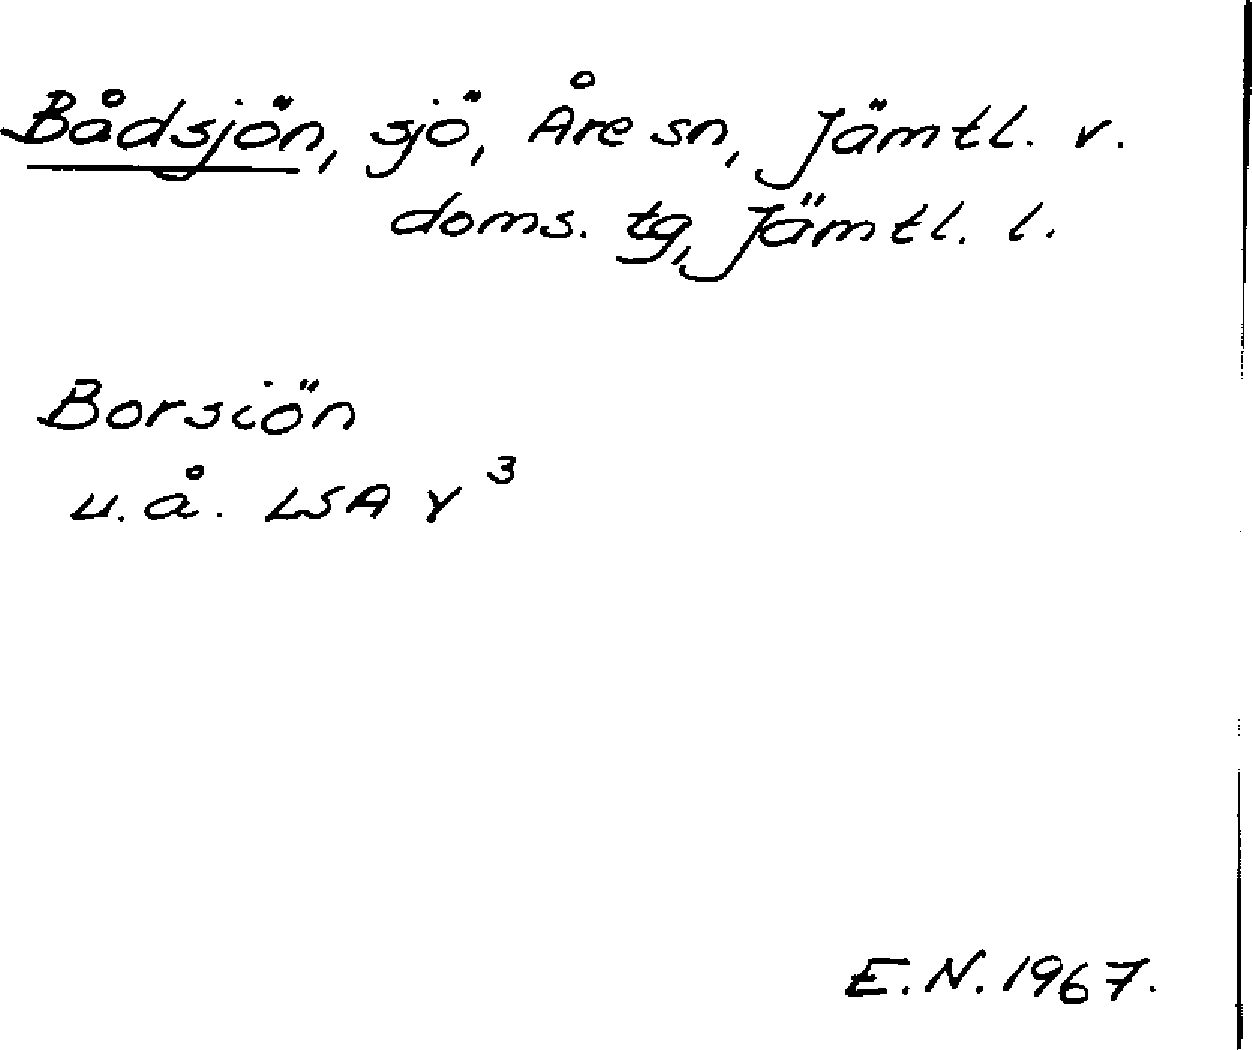 Bådsjön, sjö, Åre sn, Jämtl. v.
doms. tg, Jämtl. l.
Borsiön
u. å. LSA Y³
E. N. 1967.